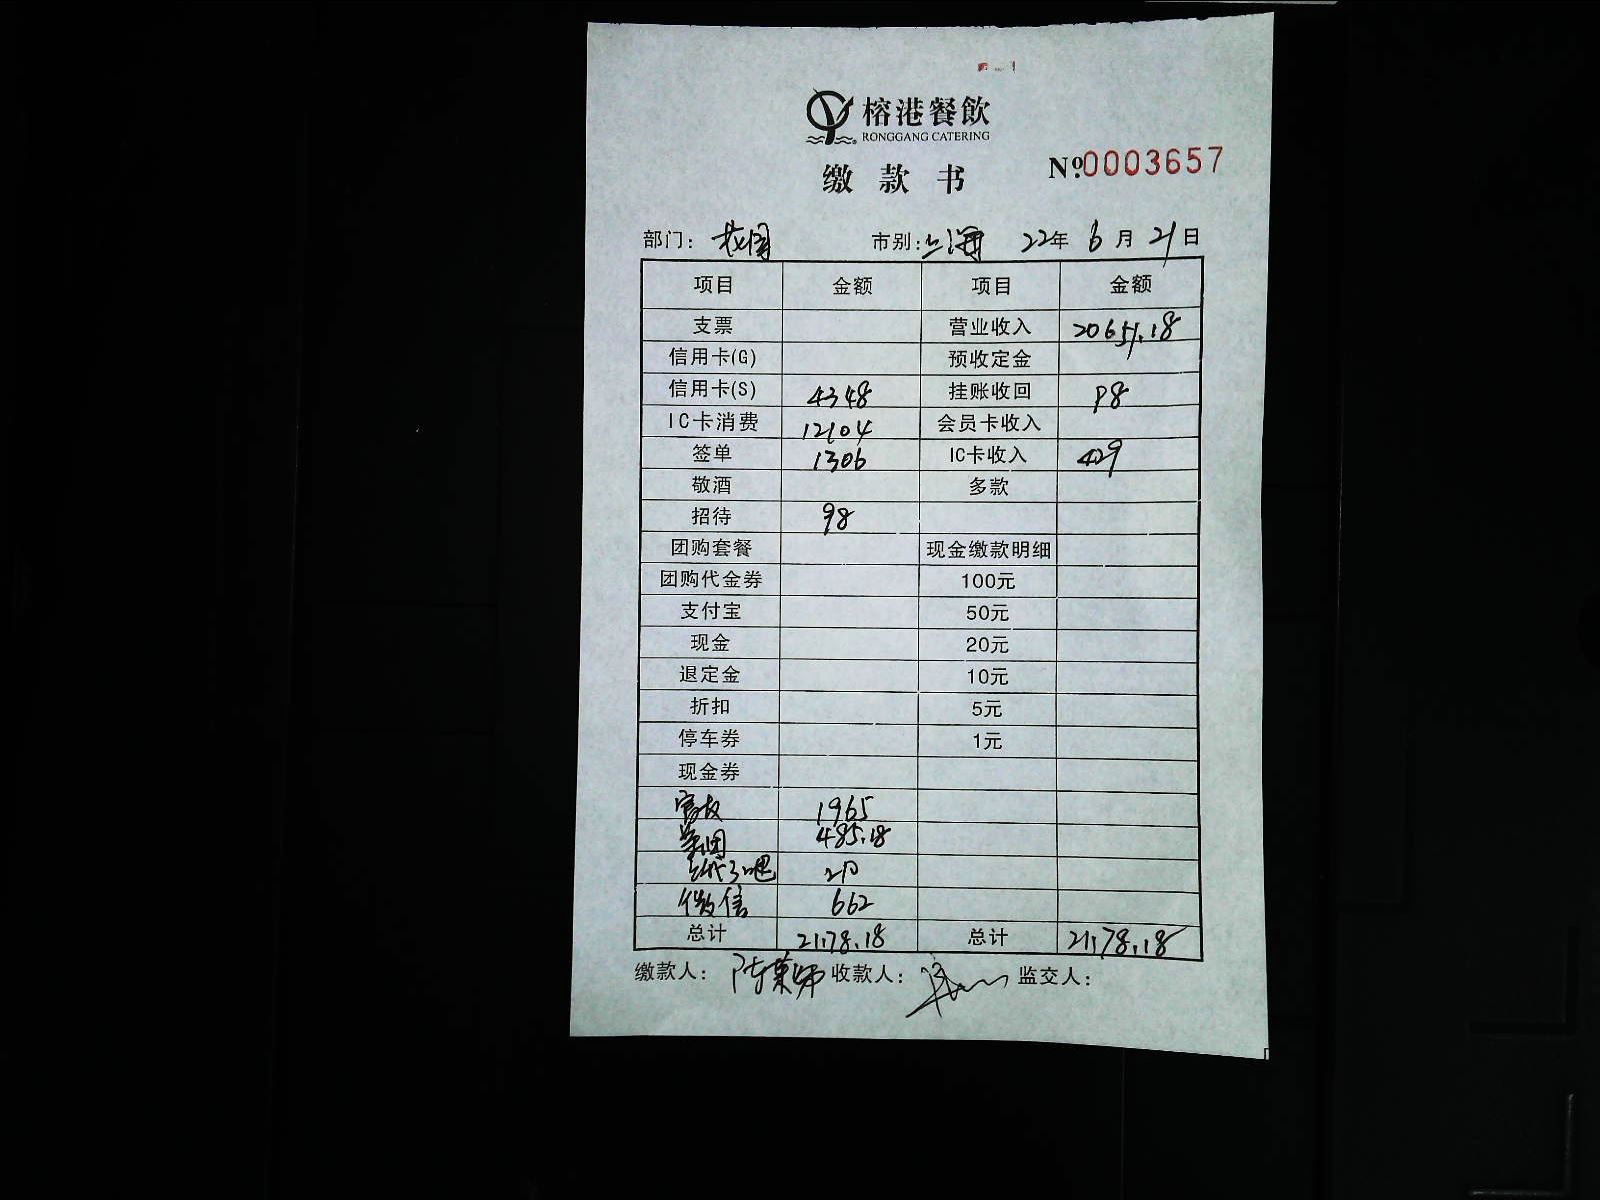 榕港餐飲
RONGGANG CATERING
缴款书 №0003657
部门: 市别: 上海 22年 6月 21日
项目 金额 项目 金额
支票 营业收入 20651.18
信用卡(G) 预收定金
信用卡(S) 4348 挂账收回 98
IC卡消费 12104 会员卡收入
签单 1306 IC卡收入 429
敬酒 多款
招待 98
团购套餐 现金缴款明细
团购代金券 100元
支付宝 50元
现金 20元
退定金 10元
折扣 5元
停车券 1元
现金券
1965
美团 485.18
210
微信 662
总计 21178.18 总计 21178.18
缴款人: 收款人: 监交人: